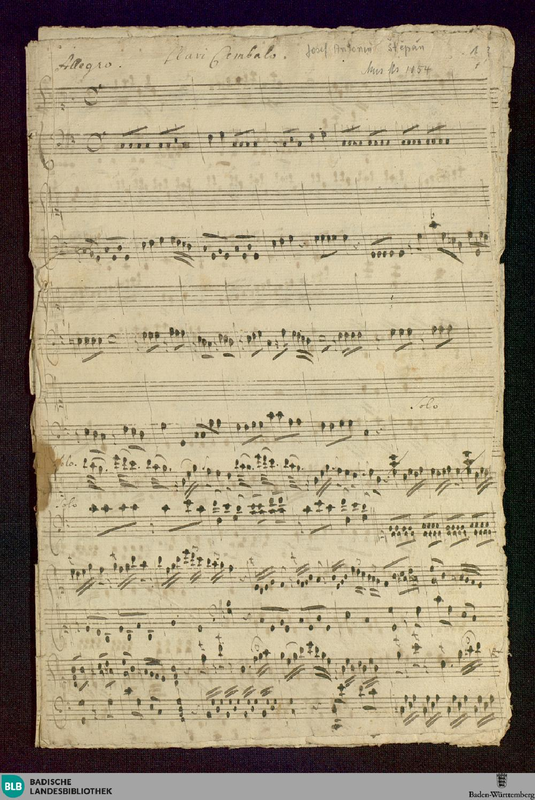 Allegro. Clavi Cembalo. Josef Antonin Stěpán
Mus. Hs. 1054
Solo
Solo.
Solo
BLB BADISCHE
LANDESBIBLIOTHEK
Baden-Württemberg